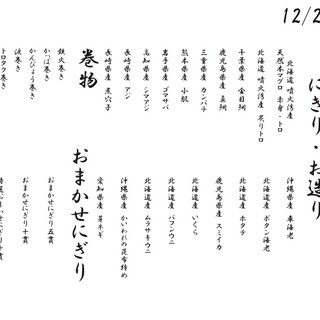 12/2
にぎり・お造り
北海道 噴火湾産
天然本マグロ 赤身・トロ
北海道 噴火湾産 炙りトロ
千葉県産 金目鯛
鹿児島県産 真鯛
三重県産 カンパチ
熊本県産 小肌
岩手県産 ゴマサバ
高知県産 シマアジ
長崎県産 アジ
長崎県産 煮穴子
沖縄県産 車海老
北海道産 ボタン海老
北海道産 ホタテ
鹿児島県産 スミイカ
北海道産 いくら
北海道産 バフンウニ
北海道産 ムラサキウニ
沖縄県産 かいわれの昆布締め
愛知県産 芽ネギ
巻物
鉄火巻き
かっぱ巻き
かんぴょう巻き
トロタク巻き
おまかせにぎり
おまかせにぎり五貫
おまかせにぎり十貫